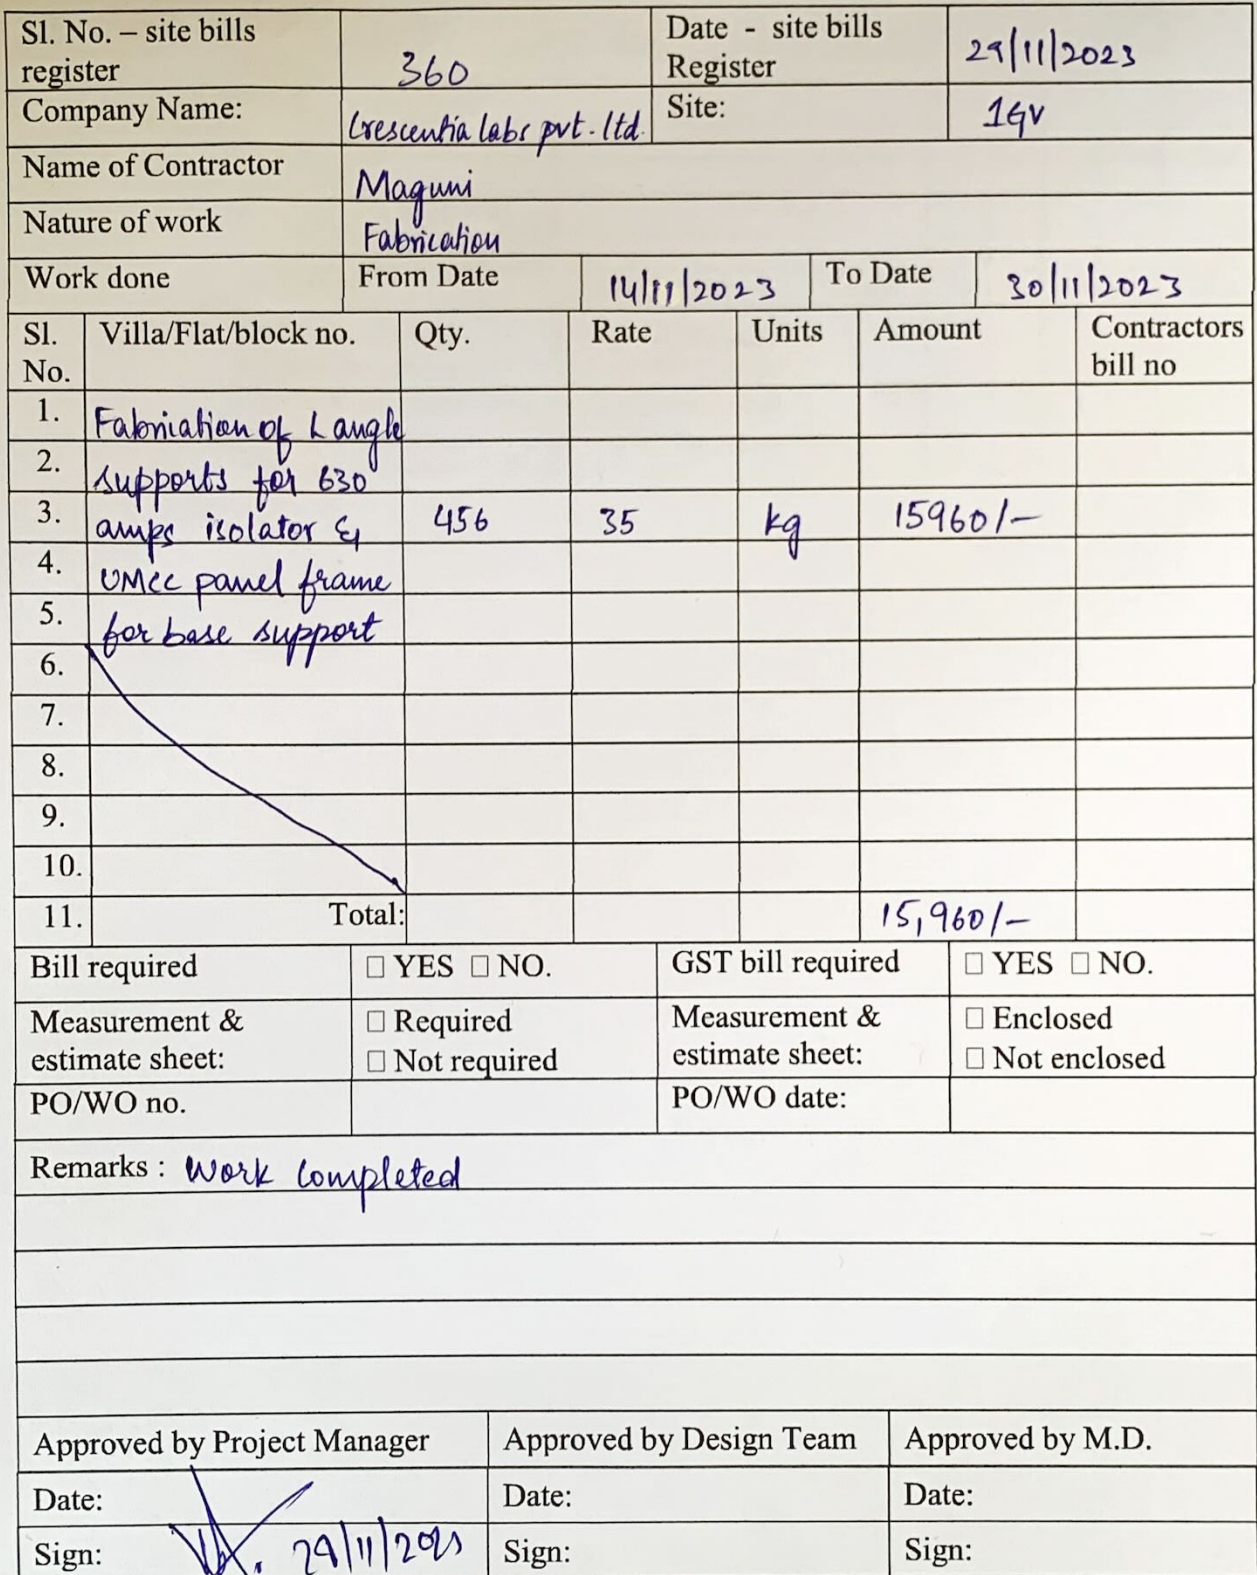 Sl. No. – site bills register 360 Date - site bills Register 29/11/2023
Company Name: Crescentia labs pvt. ltd. Site: 1GV
Name of Contractor Maguni
Nature of work Fabrication
Work done From Date 14/11/2023 To Date 30/11/2023
Sl. No. Villa/Flat/block no. Qty. Rate Units Amount Contractors bill no
1. Fabrication of L angle
2. supports for 630
3. amps isolator & 456 35 kg 15960/-
4. UMCC panel frame
5. for base support
6.
7.
8.
9.
10.
11. Total: 15,960/-
Bill required □ YES □ NO. GST bill required □ YES □ NO.
Measurement & estimate sheet: □ Required □ Not required Measurement & estimate sheet: □ Enclosed □ Not enclosed
PO/WO no. PO/WO date:
Remarks : Work Completed
Approved by Project Manager Approved by Design Team Approved by M.D.
Date: Date: Date:
Sign: 29/11/2023 Sign: Sign: